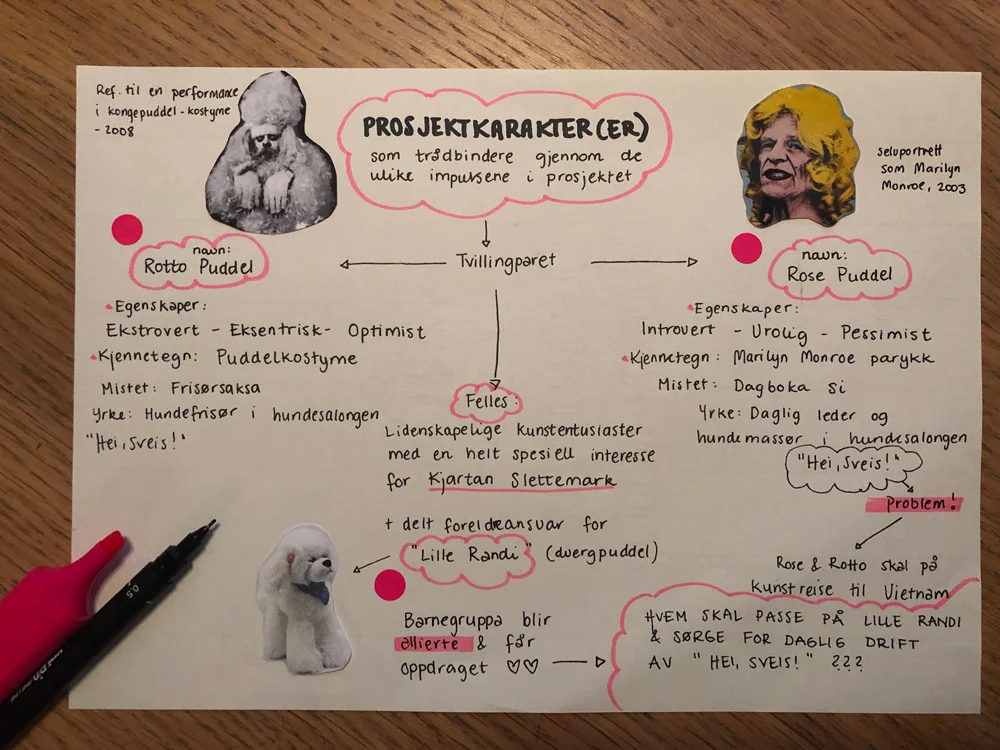 Ref. til en performance
i kongepuddel-kostyme
- 2008
PROSJEKTKARAKTER(ER)
som trådbindere gjennom de
ulike impulsene i prosjektet
seluportrett
som Marilyn
Monroe, 2003
Tvillingparet
navn:
Rotto Puddel
Egenskaper:
Ekstrovert - Eksentrisk - Optimist
Kjennetegn: Puddelkostyme
Mistet: Frisørsaksa
Yrke: Hundefrisør i hundesalongen
"Hei, sveis!"
navn:
Rose Puddel
Egenskaper:
Introvert - Urolig - Pessimist
Kjennetegn: Marilyn Monroe parykk
Mistet: Dagboka si
Yrke: Daglig leder og
hundemassør i hundesalongen
"Hei, Sveis!"
Problem!
Rose & Rotto skal på
kunstreise til Vietnam
Felles:
Lidenskapelige kunstentusiaster
med en helt spesiell interesse
for Kjartan Slettemark
+ delt foreldreansvar for
"Lille Randi" (dvergpuddel)
Barnegruppa blir
allierte & får
oppdraget ♡♡
HVEM SKAL PASSE PÅ LILLE RANDI
& SØRGE FOR DAGLIG DRIFT
AV "HEI, SVEIS!" ???
0.5